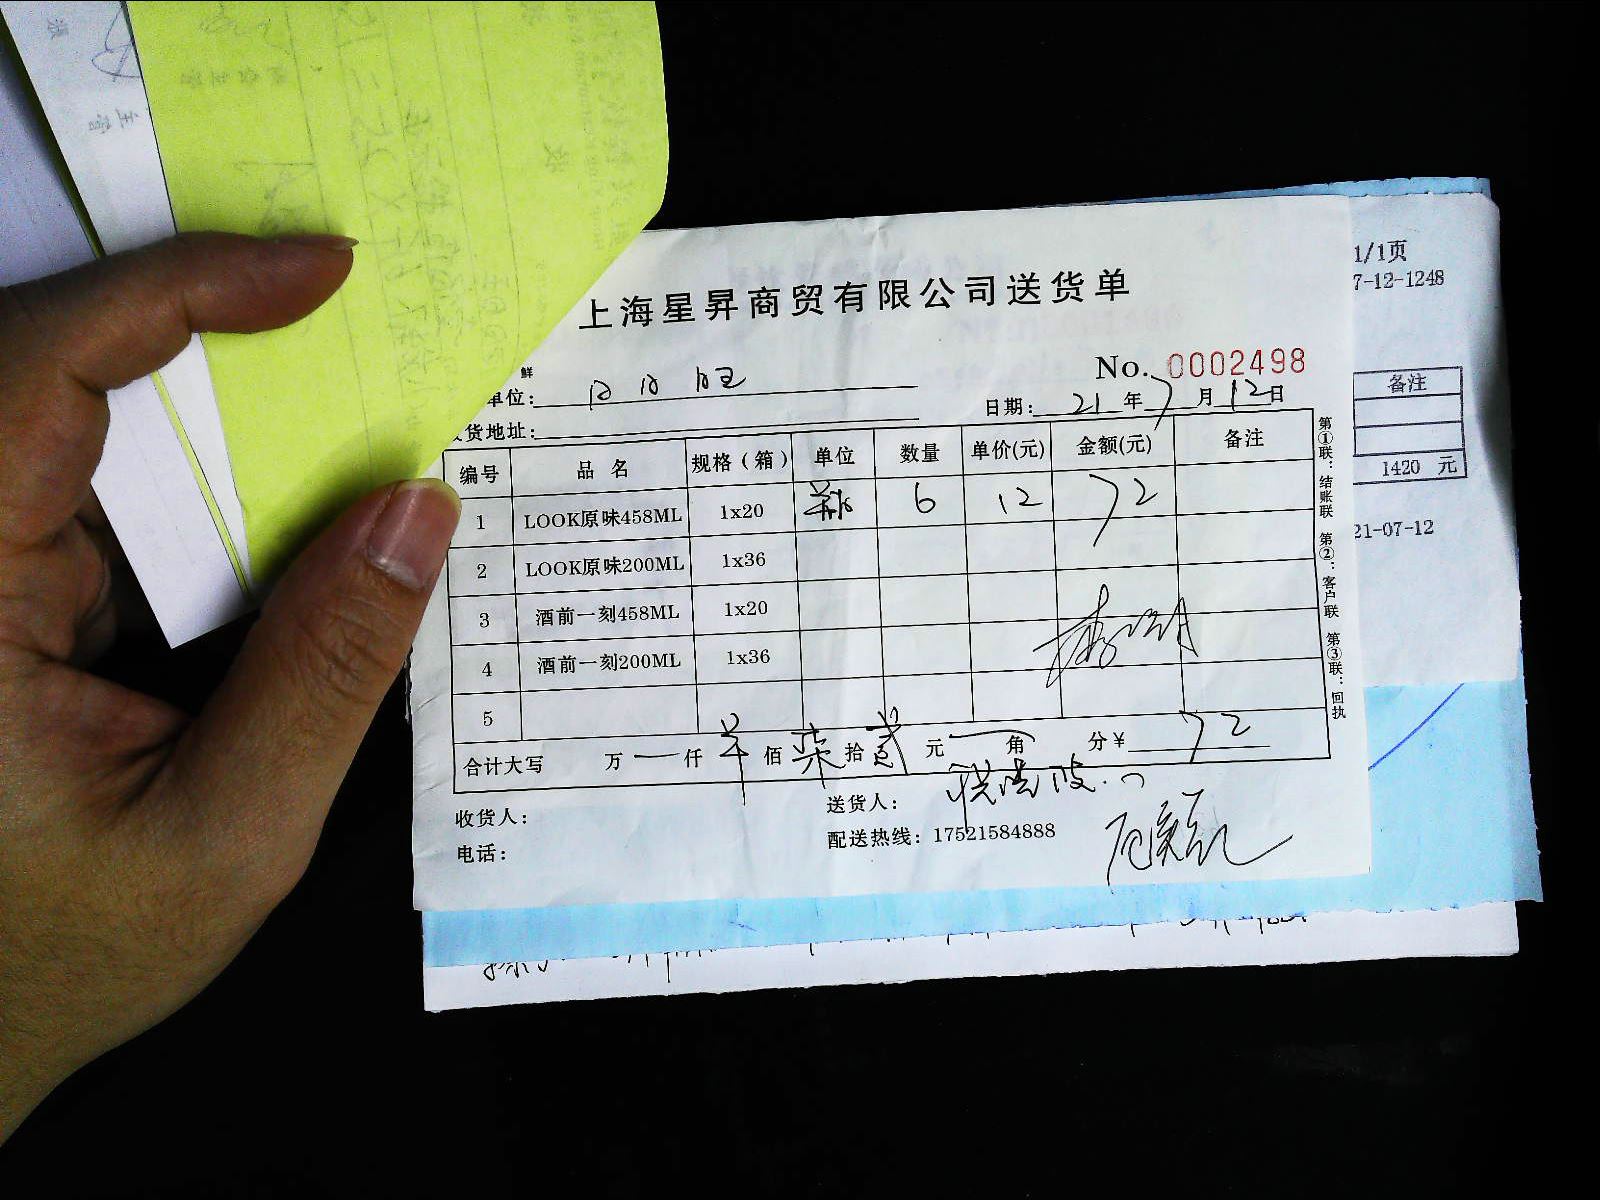 上海星昇商贸有限公司送货单
No. 0002498
鲜
单位: 日日旺
日期: 21 年 7 月 12 日
货地址:
编号 品 名 规格(箱) 单位 数量 单价(元) 金额(元) 备注
1 LOOK原味458ML 1x20 瓶 6 12 72
2 LOOK原味200ML 1x36
3 酒前一刻458ML 1x20
4 酒前一刻200ML 1x36
5
合计大写 万 仟 佰 柒 拾 贰 元 角 分 ¥ 72
收货人: 送货人:
电话: 配送热线: 17521584888
第①联: 结账联 第②: 客户联 第③联: 回执
1/1页
7-12-1248
备注
1420 元
21-07-12
主管